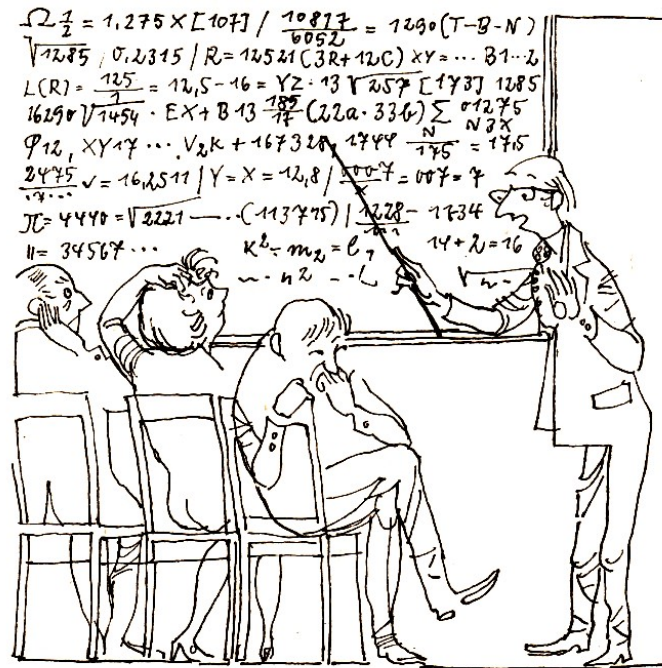 Ω 1/2 = 1,275 X [107] / 10817/6052 = 1290 (T-B-N)
√1285 / 0,2315 / R = 12521 (3R+12C) XY = ... B1...2
L(R) = 125/1 = 12,5 - 16 = YZ · 13 √257 [173] 1285
16290 √1454 · EX + B 13 185/17 (22a · 33b) ∑ 01275
φ12, XY17 ... V2K + 167328, 1744 N/175 N3X = 17,5
2475 √ = 16,2511 / Y = X = 12,8 / 0007/X = 007 = 7
π = 4440 = √2221 — ... (113715) / 1228 - 1734
11 = 34567 ... K² - m2 = l1 14 + 2 = 16
n2 - L √